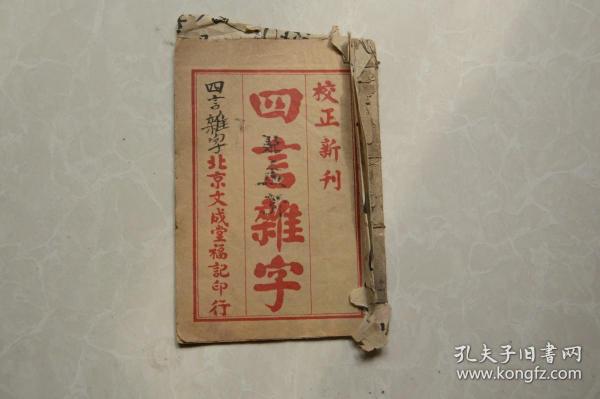 校正新刊
四言雜字
四言雜字
北京文成堂福記印行
孔夫子旧书网
www.kongfz.com